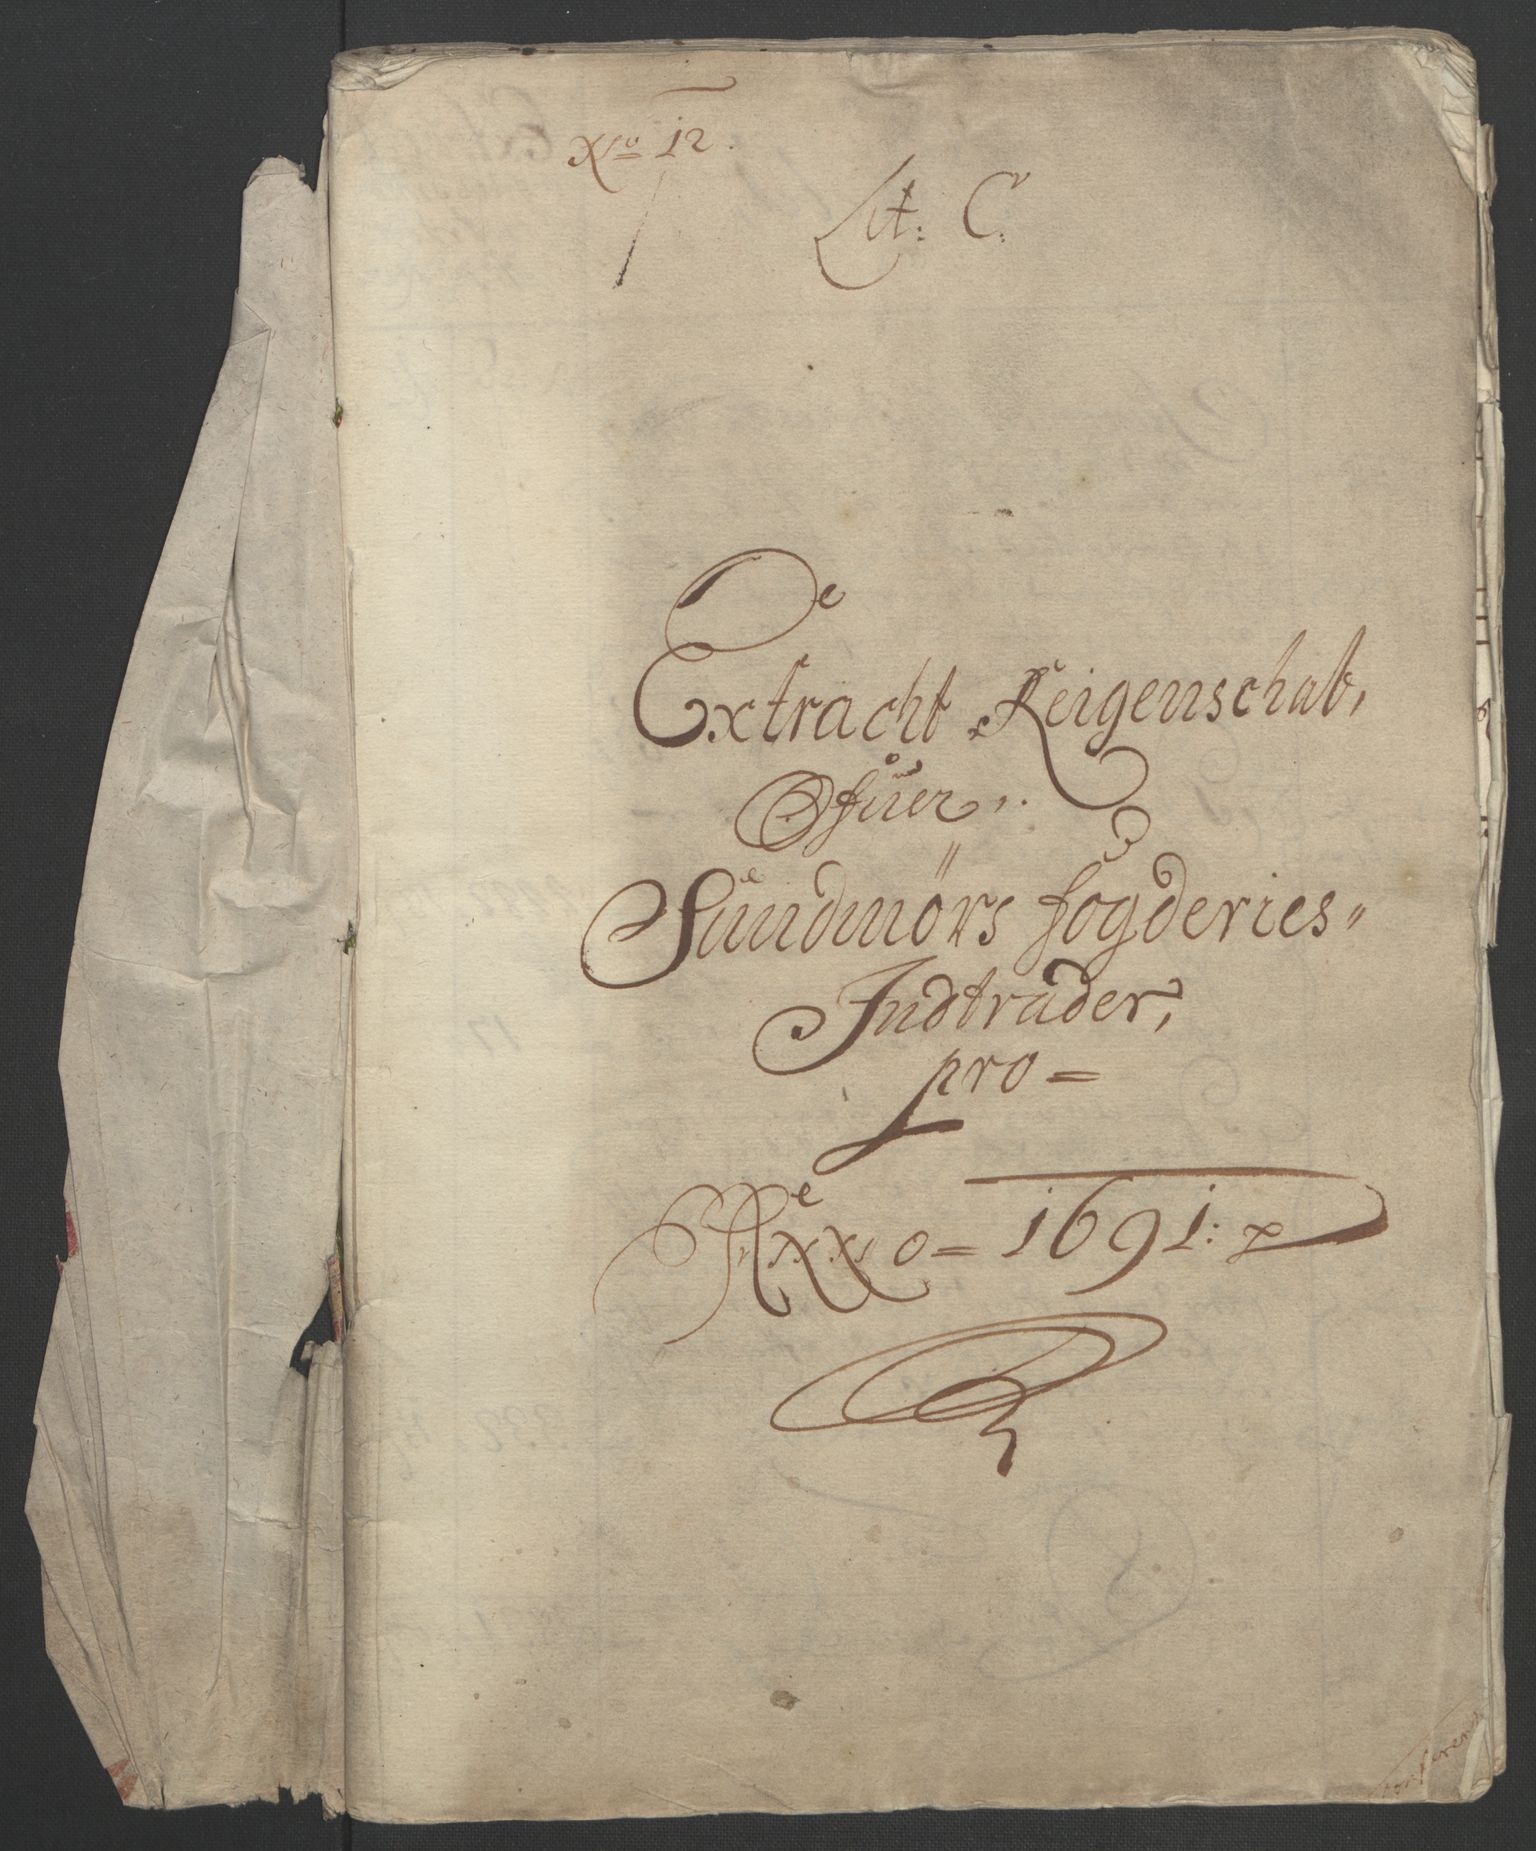 No 12.
Lit: C:
Extracht Reigenschab,
Ofuer,
Sundmörs fogderies
Indtrader,
pro =
Anno = 1691: